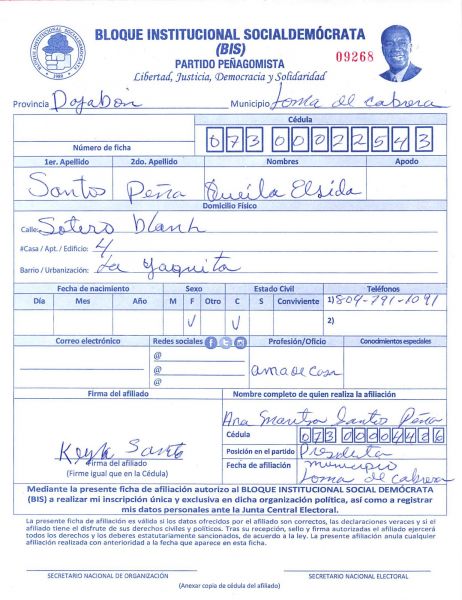 BLOQUE INSTITUCIONAL SOCIALDEMÓCRATA
(BIS)
PARTIDO PEÑAGOMISTA
Libertad, Justicia, Democracia y Solidaridad
09268
Provincia Dajabon Municipio Loma de cabrera
Cédula
Número de ficha 07300022543
1er. Apellido 2do. Apellido Nombres Apodo
Santos Peña Queila Elsida
Domicilio Físico
Calle: Sotero Blanh
#Casa / Apt. / Edificio: 4
Barrio / Urbanización: La Yaquita
Fecha de nacimiento Sexo Estado Civil Teléfonos
Día Mes Año M F Otro C S Conviviente 1) 809-791-1091
2)
Correo electrónico Redes sociales Profesión/Oficio Conodmientos especiales
@
@
@
ama de casa
Firma del afiliado Nombre completo de quien realiza la afiliación
Ana Maritza Santos Peña
Cédula
07300004486
Keyla Santo
Firma del afiliado
(Firme igual que en la Cédula)
Posición en el partido Presidenta
Fecha de afiliación municipio
Loma de cabrera
Mediante la presente ficha de afiliación autorizo al BLOQUE INSTITUCIONAL SOCIAL DEMÓCRATA
(BIS) a realizar mi inscripción única y exclusiva en dicha organización política, así como a registrar
mis datos personales ante la Junta Central Electoral.
La presente ficha de afiliación es válida si los datos ofrecidos por el afiliado son correctos, las declaraciones veraces y si el
afiliado tiene el disfrute de sus derechos civiles y políticos. Tras su recepción, sello y firma autorizadas el afiliado ejercerá
todos los derechos y los deberes estatutariamente sancionados, de acuerdo a la ley. La presente afiliación anula cualquier
afiliación realizada con anterioridad a la fecha que aparece en esta ficha.
SECRETARIO NACIONAL DE ORGANIZACIÓN SECRETARIO NACIONAL ELECTORAL
(Anexar copia de cédula del afiliado)